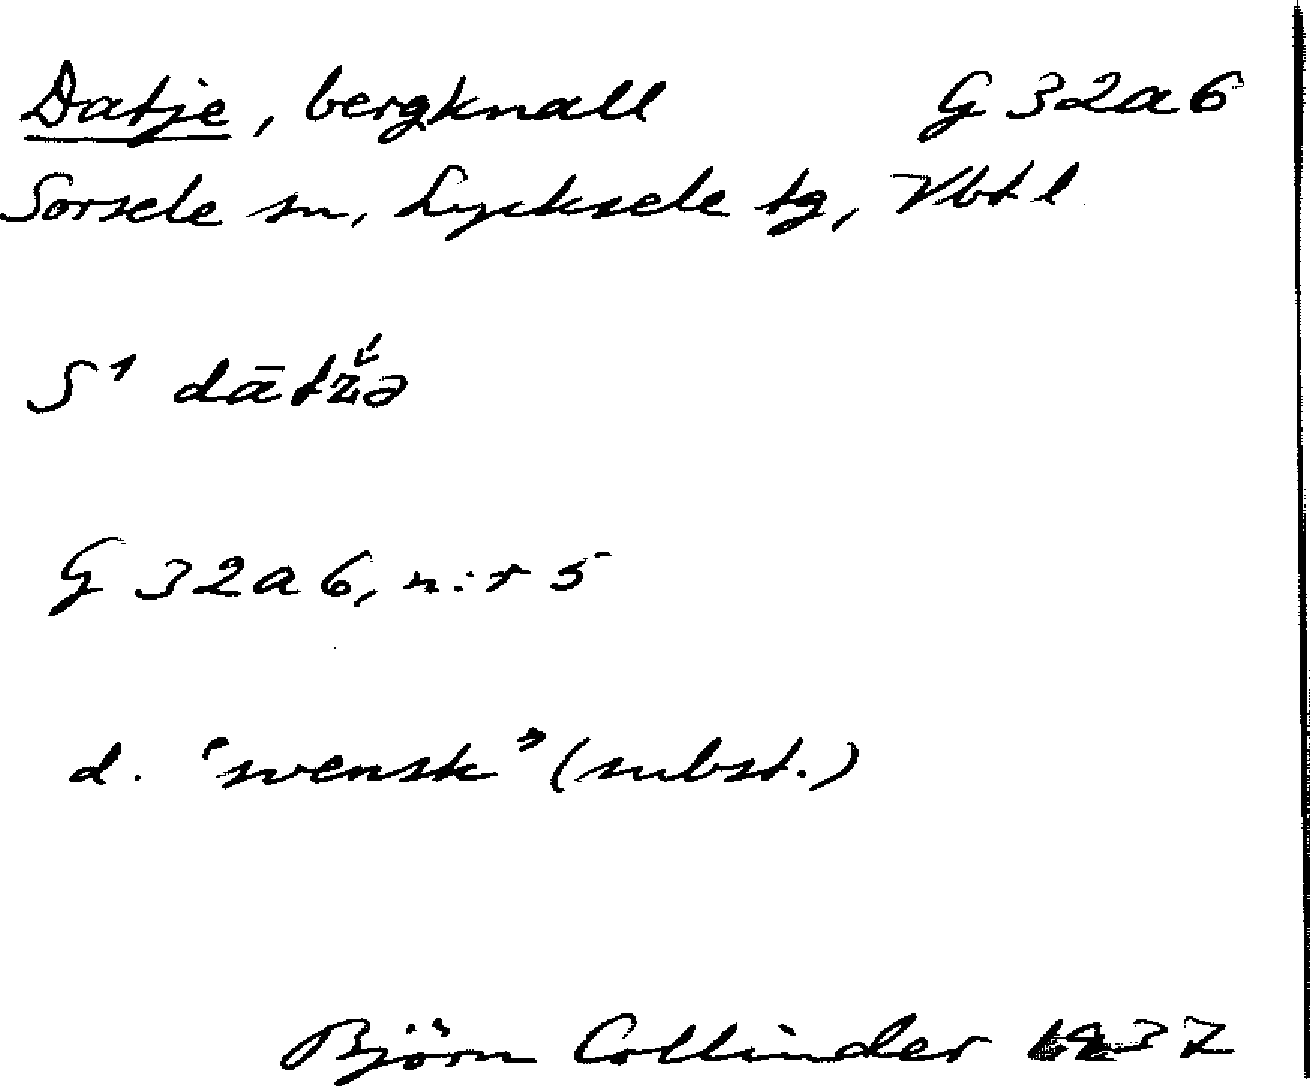 Datje, bergknall G 32a6
Sorsele sn, Lycksele tg, Vbtl
S¹ dātž́ə
G 32a6, n:r 5
d. "svensk" (subst.)
Björn Collinder 1937